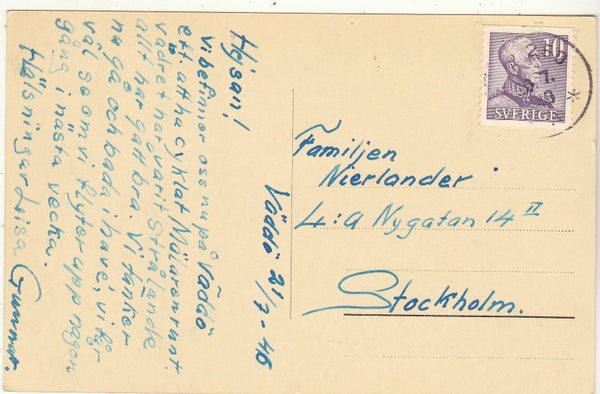 Väddö 21/7-46
Hejsan!
Vi befinner oss nu på Väddö
eft. att ha cyklat Mälaren runt
vädret har varit strålande
allt har gått bra. Vi tänker
nu gå och bada i have, vi hör
väl se om vi flyter upp någon
gång i nästa vecka.
Hälsningar Lisa Gunnar.
10
SVERIGE
Familjen
Nierlander
L:a Nygatan 14 II
Stockholm.